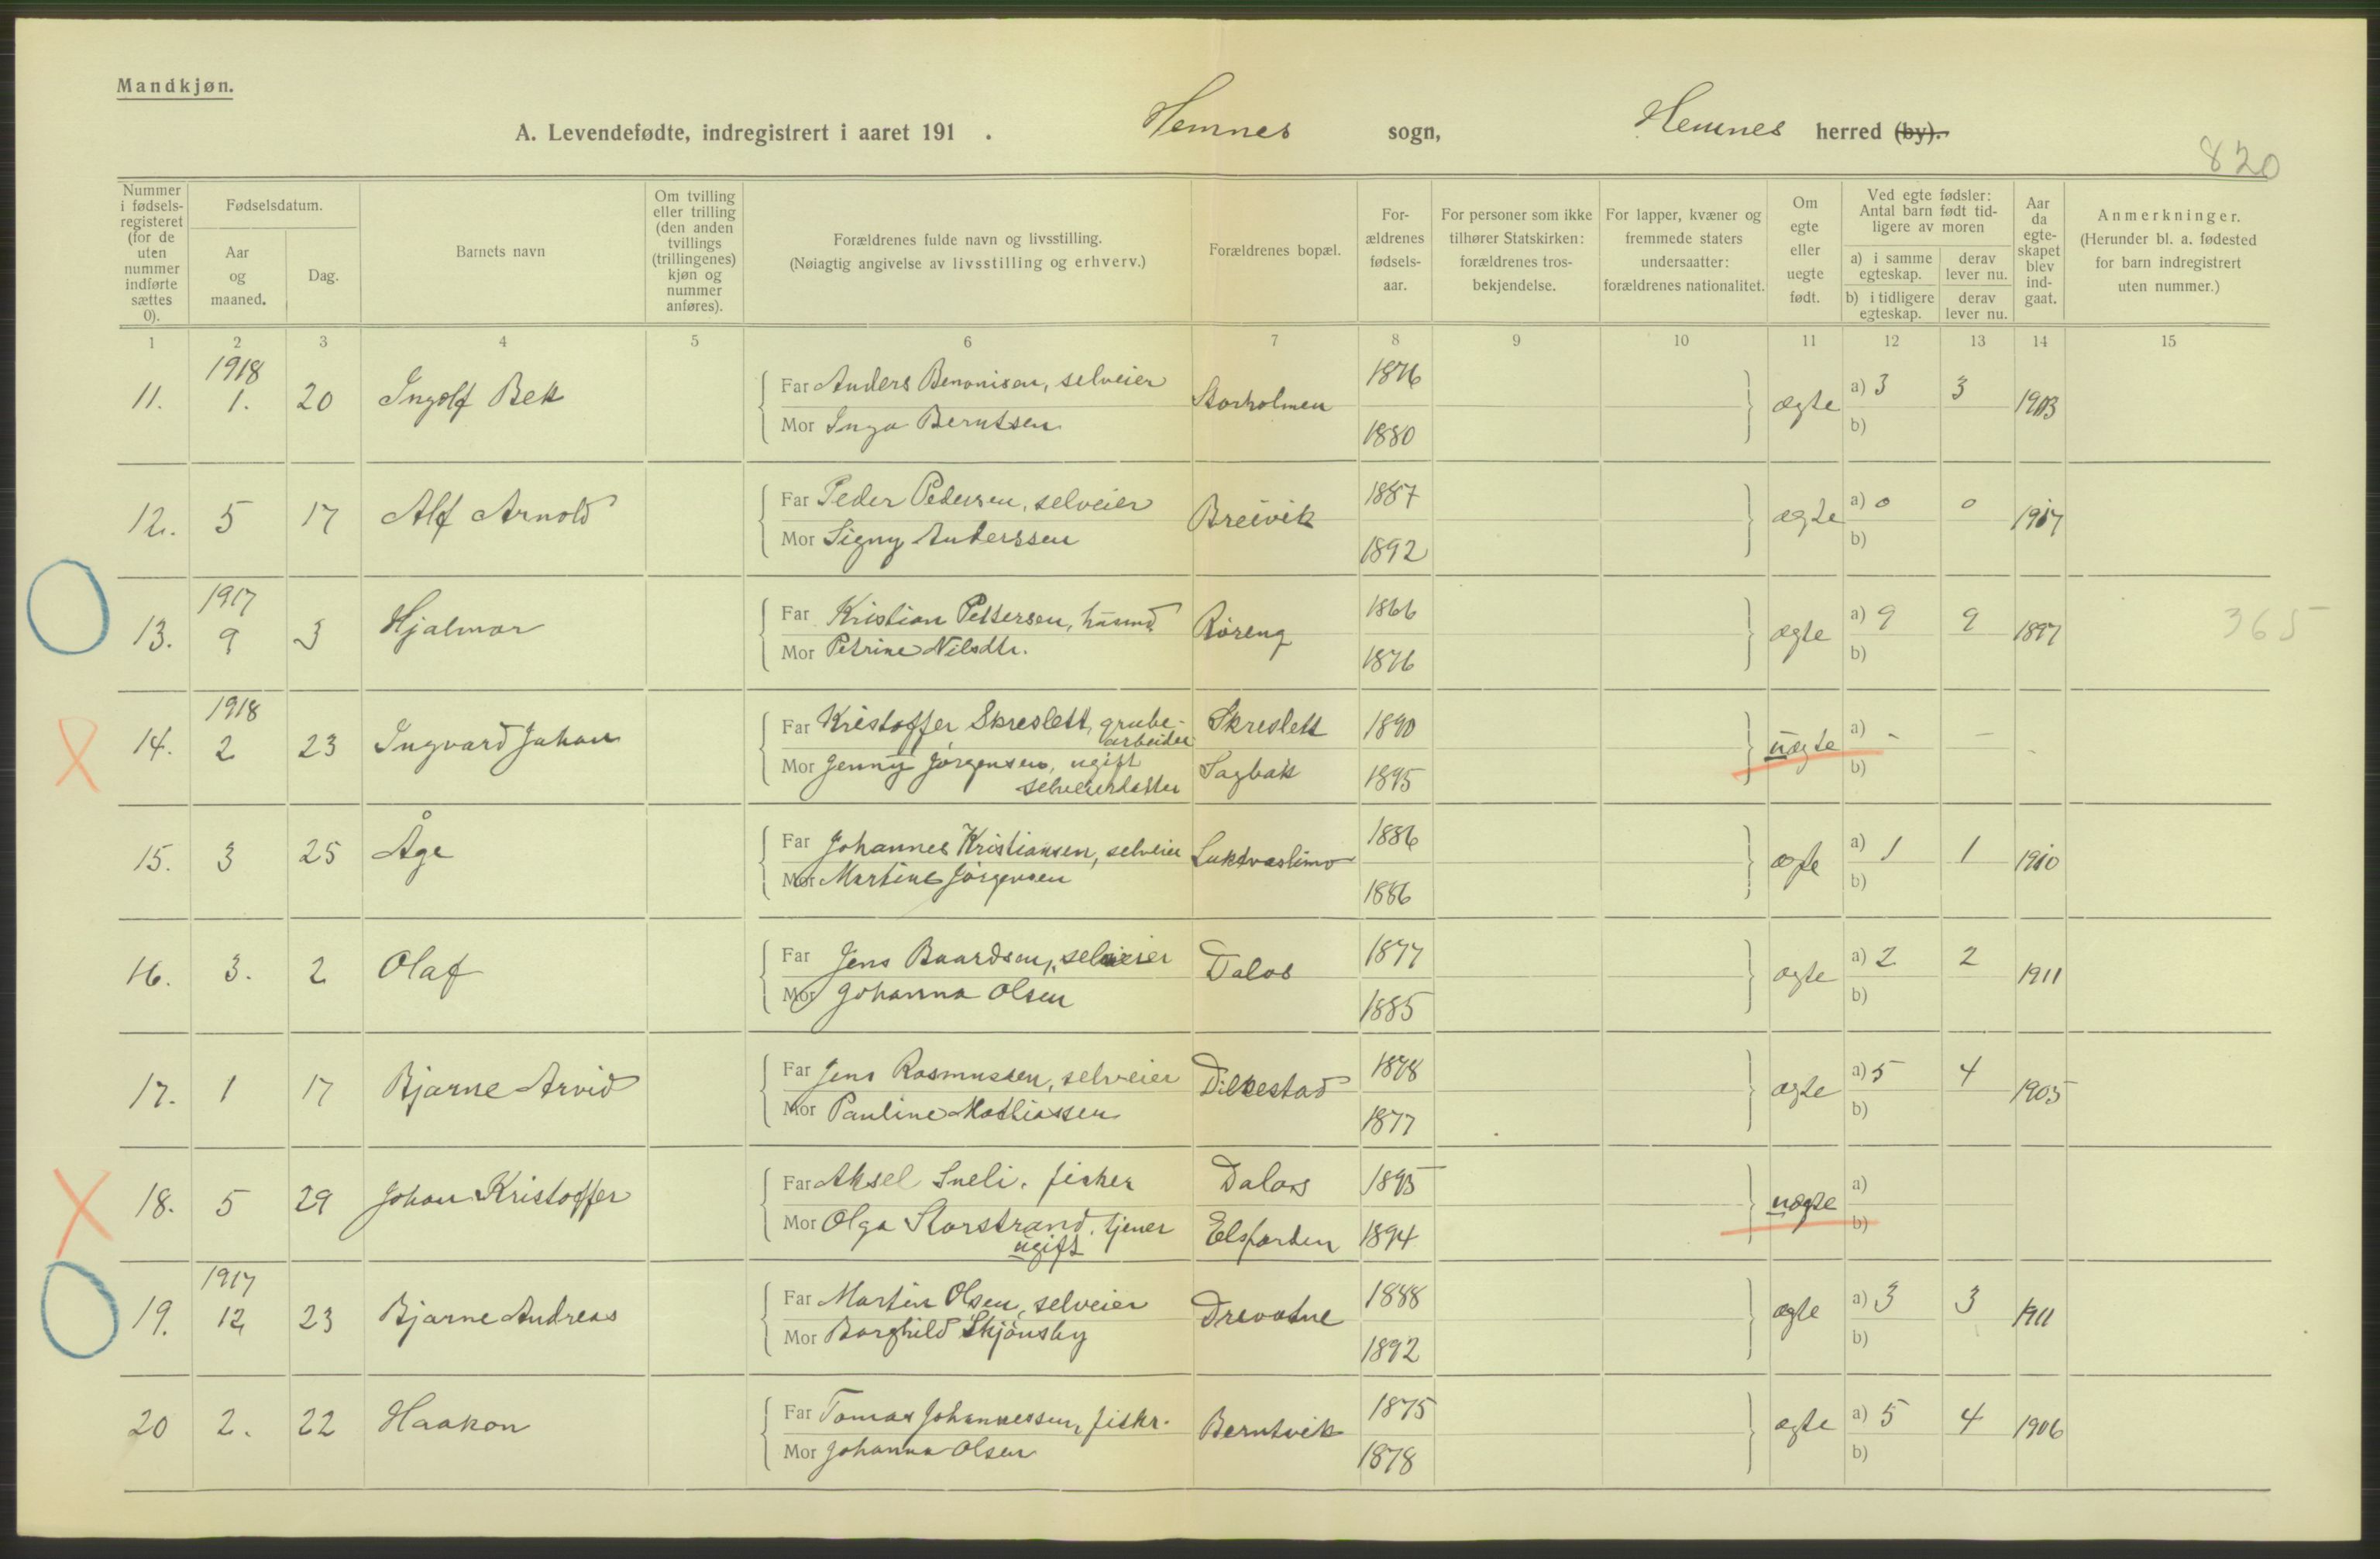 Mandkjøn.
A. Levendefødte, indregistrert i aaret 191 . Hemnes sogn, Hemnes herred (by).
820
Nummer i fødsels-registeret (for de uten nummer indførte sættes 0).
Fødselsdatum.
Aar og maaned.
Dag.
Barnets navn
Om tvilling eller trilling (den anden tvillings (trillingenes) kjøn og nummer anføres).
Forældrenes fulde navn og livsstilling.
(Nøiagtig angivelse av livsstilling og erhverv.)
Forældrenes bopæl.
For-ældrenes fødsels-aar.
For personer som ikke tilhører Statskirken: forældrenes tros-bekjendelse.
For lapper, kvæner og fremmede staters undersaatter: forældrenes nationalitet.
Om egte eller uegte født.
Ved egte fødsler: Antal barn født tid-ligere av moren
a) i samme egteskap.
derav lever nu.
b) i tidligere egteskap.
derav lever nu.
Aar da egte-skapet blev ind-gaat.
Anmerkninger.
(Herunder bl. a. fødested for barn indregistrert uten nummer.)
1 2 3 4 5 6 7 8 9 10 11 12 13 14 15
1918
11. 1. 20 Ingolf Bek Far Anders Benonisen, selveier Storholmen 1876 ægte a) 3 3 1903
Mor Inga Berntsen 1880 b)
12. 5 17 Alf Arnold Far Peder Pedersen, selveier Breivik 1887 ægte a) 0 0 1917
Mor Signy Anderssen 1892 b)
1917
13. 9 3 Hjalmar Far Kristian Pettersen, husmd. Røreng 1866 ægte a) 9 9 1897 365
Mor Petrine Nilsdtr. 1876 b)
1918
14. 2 23 Ingvard Johan Far Kristoffer Skreslett, grube-arbeider Skreslett 1890 uægte a) - — -
Mor Jenny Jørgensen, ugift selveierdatter Sagbak 1895 b)
15. 3 25 Åge Far Johannes Kristiansen, selveier Luktvaslimo 1886 ægte a) 1 1 1910
Mor Martine Jørgensen 1886 b)
16. 3. 2 Olaf Far Jens Baardsen, selveier Dalos 1877 ægte a) 2 2 1911
Mor Johanna Olsen 1885 b)
17. 1 17 Bjarne Arvid Far Jens Rasmussen, selveier Dilkestad 1878 ægte a) 5 4 1905
Mor Pauline Mathiassen 1877 b)
18. 5 29 Johan Kristoffer Far Aksel Sneli. fisker Dalos 1895 uægte a)
Mor Olga Storstrand. tjener ugift Elsfjorden 1894 b)
1917
19. 12 23 Bjarne Andreas Far Martin Olsen, selveier Drevatne 1888 ægte a) 3 3 1911
Mor Borghild Skjønsby 1892 b)
20 2. 22 Haakon Far Tomas Johannessen, fiskr. Berntvik 1875 ægte a) 5 4 1906
Mor Johanna Olsen 1878 b)